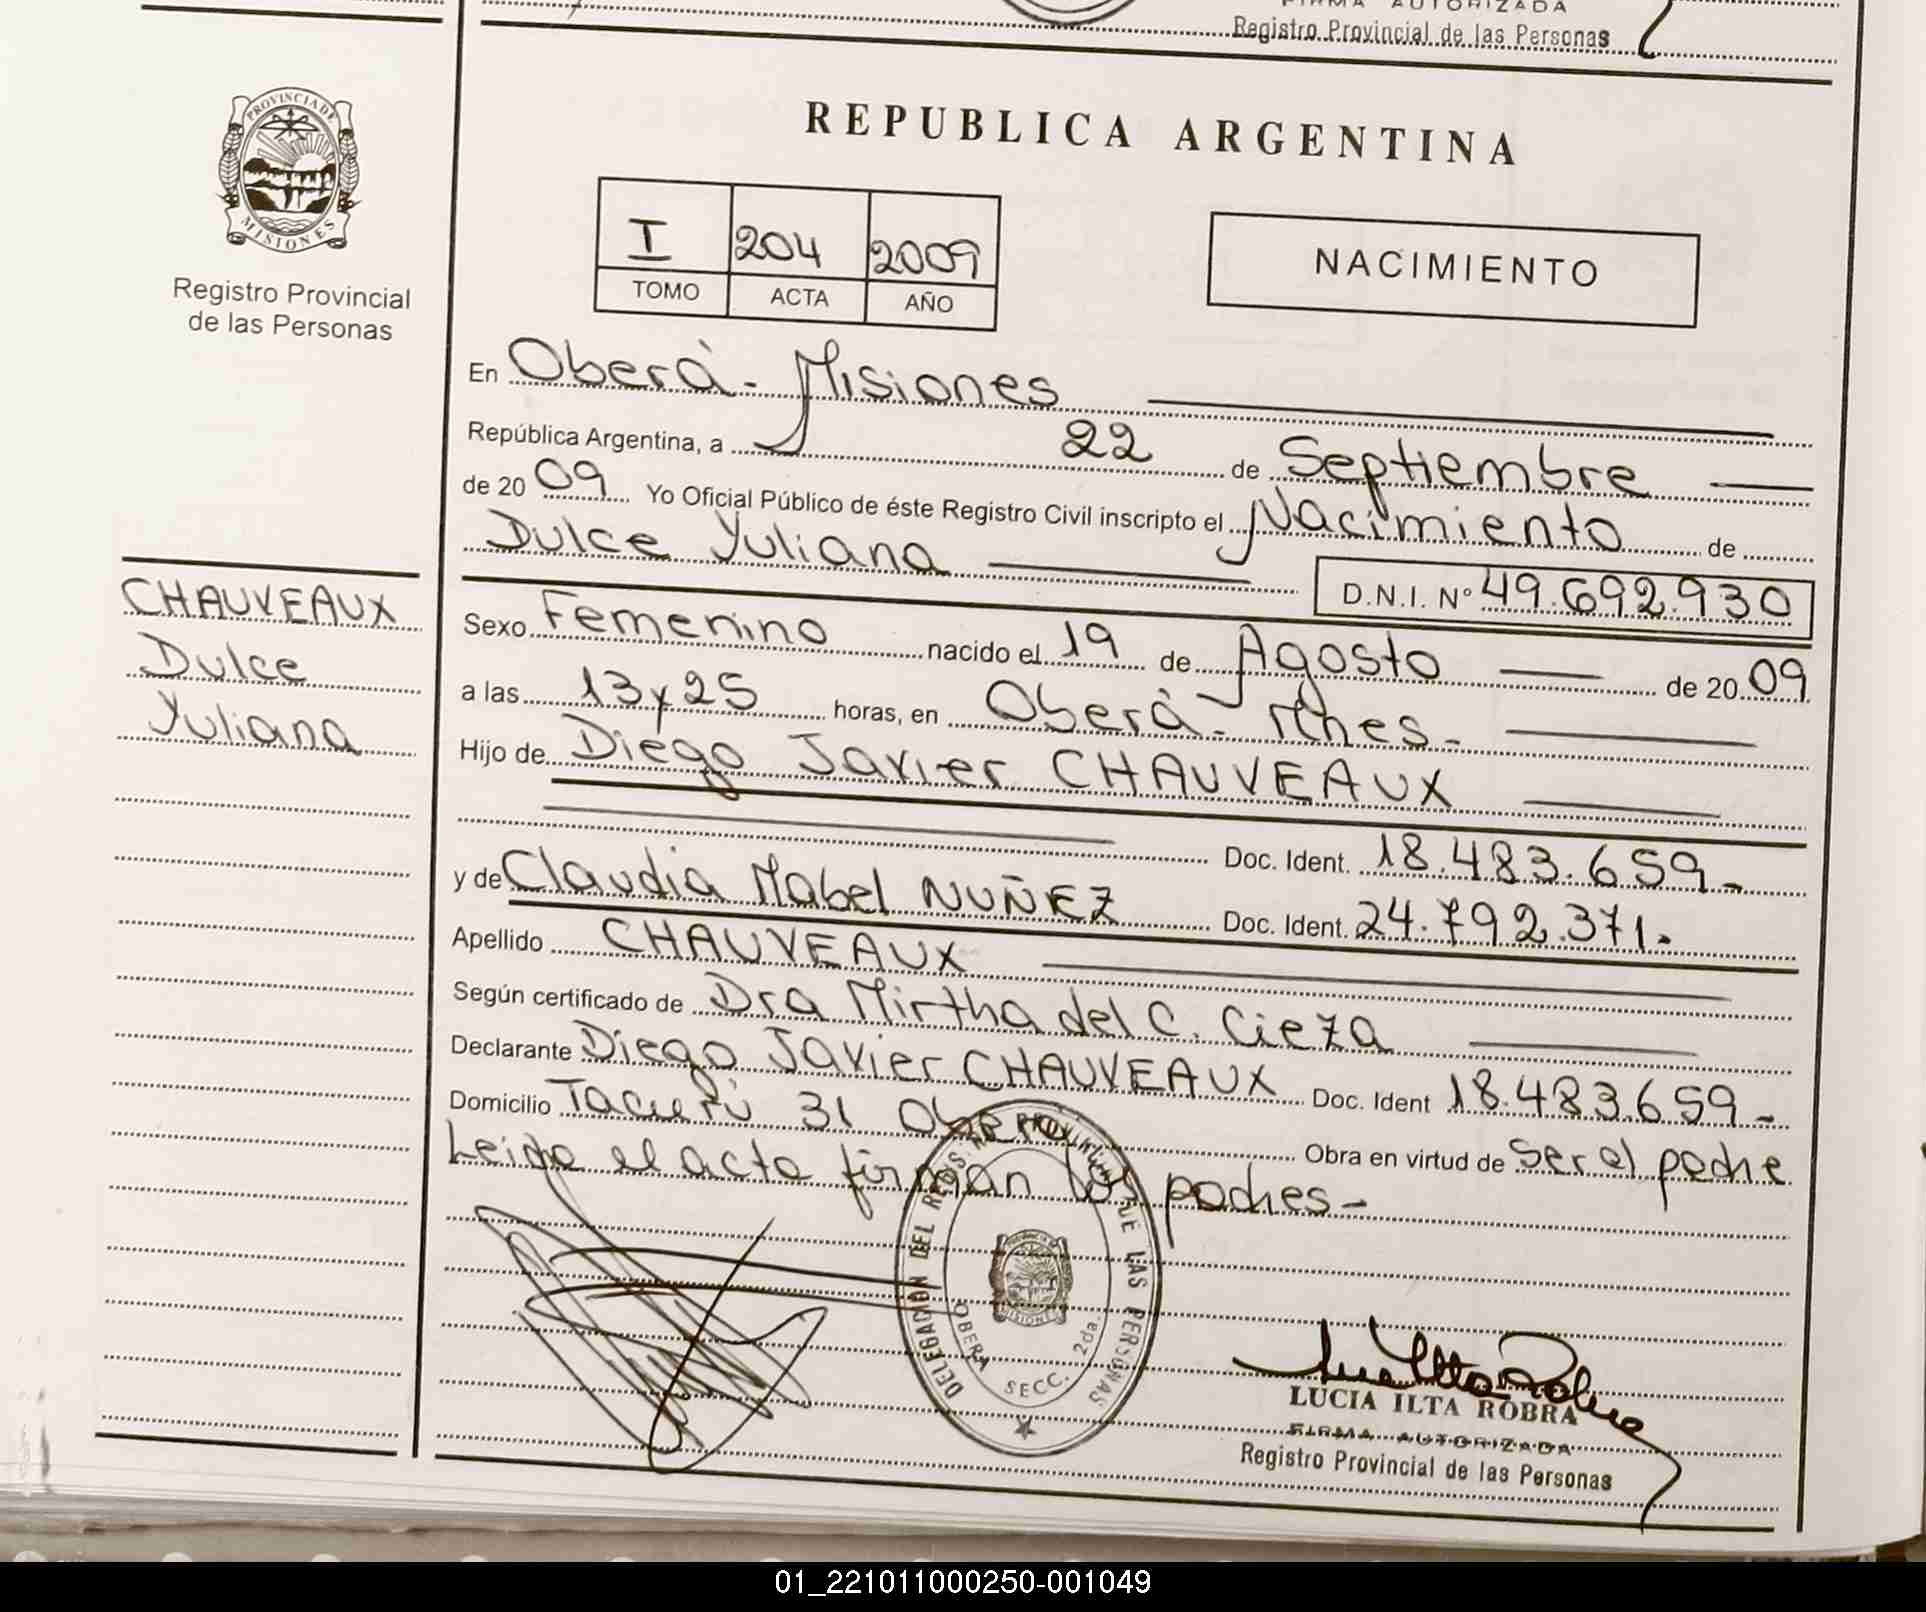 FIRMA AUTORIZADA
Registro Provincial de las Personas
PROVINCIA DE
MISIONES
Registro Provincial
de las Personas
REPUBLICA ARGENTINA
I 204 2009
TOMO ACTA AÑO
NACIMIENTO
En Oberá - Misiones
República Argentina, a 22 de Septiembre
de 20 09 Yo Oficial Público de éste Registro Civil inscripto el Nacimiento de
Dulce Yuliana
D.N.I. N° 49.692.930
CHAUVEAUX
Dulce
Yuliana
Sexo Femenino nacido el 19 de Agosto de 20 09
a las 13 y 25 horas, en Oberá - Mnes -
Hijo de Diego Javier CHAUVEAUX
Doc. Ident. 18.483.659 -
y de Claudia Mabel NUÑEZ Doc. Ident. 24.792.371.
Apellido CHAUVEAUX
Según certificado de Dra Mirtha del C. Cieza
Declarante Diego Javier CHAUVEAUX Doc. Ident 18.483.659 -
Domicilio 31 Oberá Obra en virtud de ser el padre
Leida el acta firman los padres -
DELEGACION DEL REGISTRO PROVINCIAL DE LAS PERSONAS
MISIONES
OBERA SECC. 2da.
LUCIA ILTA ROBRA
FIRMA AUTORIZADA
Registro Provincial de las Personas
01_221011000250-001049